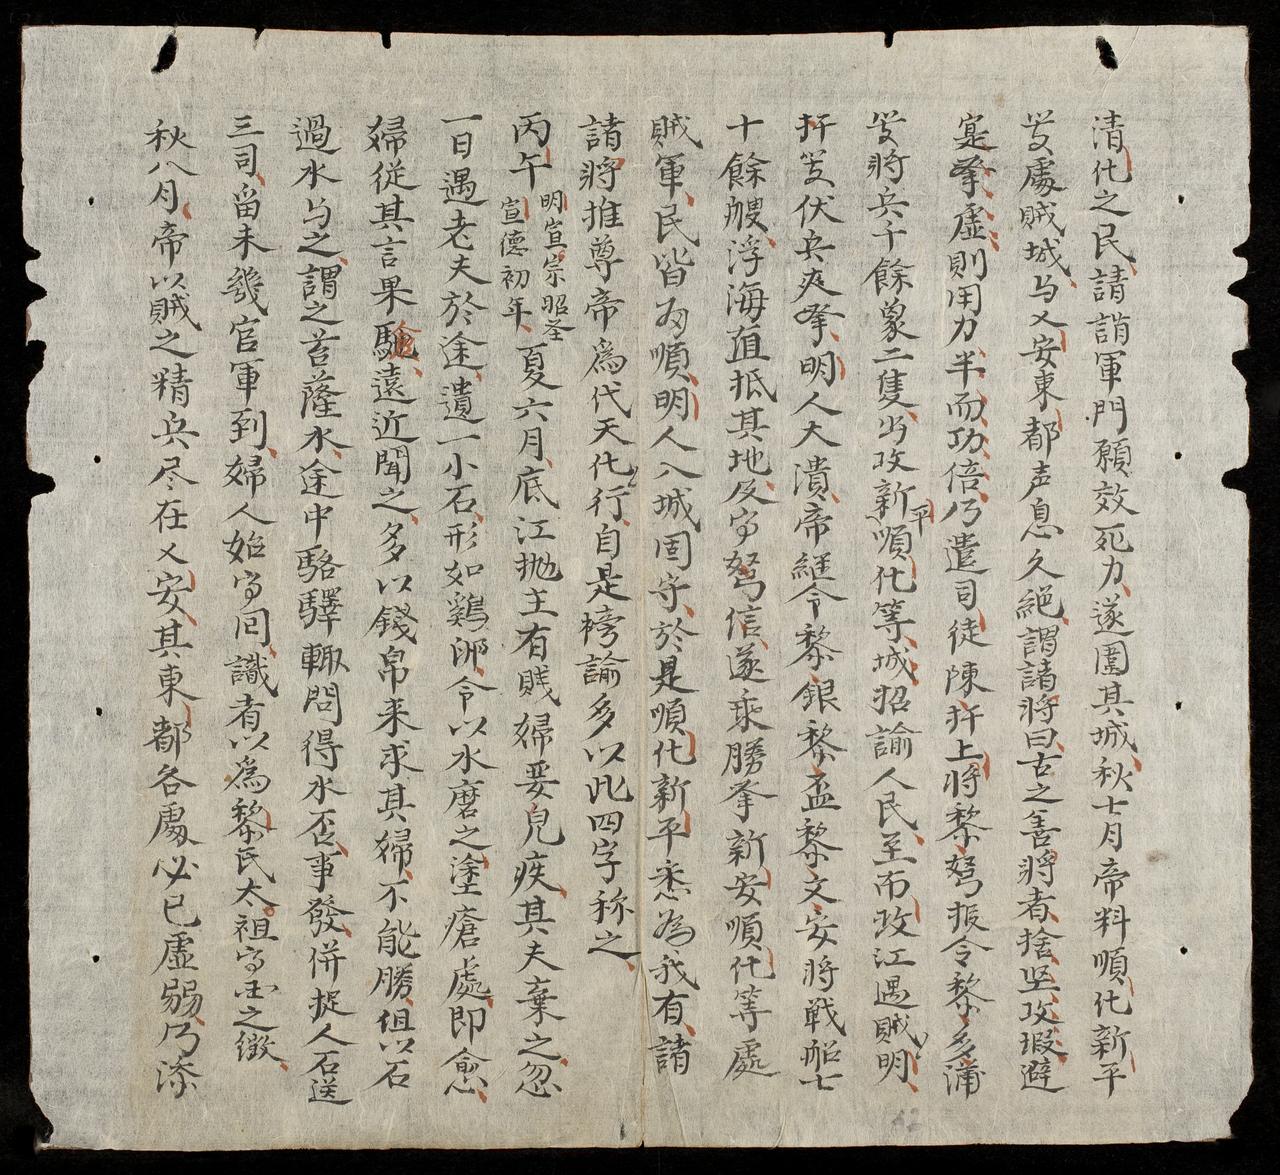 清化之民請詣軍門願效死力遂圍其城秋七月帝料順化新平
㝵處賊城与乂安東都声息久絶謂諸將曰古之善將者捨坚攻瑕避
寔擊虚則用力半而功倍乃遣司徒陳扞上將黎弩振令黎多蒲
㝵將兵千餘象二隻出攻新平順化等城招諭人民至布政江遇賊明
扞㝵伏兵夾擊明人大潰帝継令黎銀黎盃黎文安將戦船七
十餘艘浮海直抵其地及得弩信遂乘勝擊新安順化等處
賊軍民皆为順明人入城固守於是順化新平悉為我有諸
諸將推尊帝爲代天化行自是榜諭多以此四字称之
丙午明宣宗昭圣宣德初年夏六月底江抛主有賎婦妥兒疾其夫棄之忽
一日遇老夫於途遺一小石形如鷄卵令以水磨之塗瘡處即愈
婦從其言果驗遠近聞之多以錢帛来求其婦不能勝但以石
過水与之謂之苔薩水途中駱驛輙問得水否事發併捉人石送
三司留未幾官軍到婦人始得囘識者以爲黎氏太祖得国之徵
秋八月帝以賊之精兵尽在乂安其東都各處必已虚弱乃添